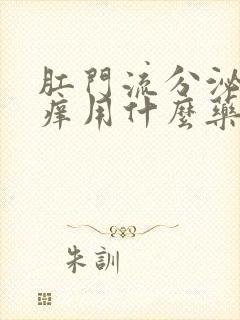 肛門流分泌
癢用什麼藥
朱訓